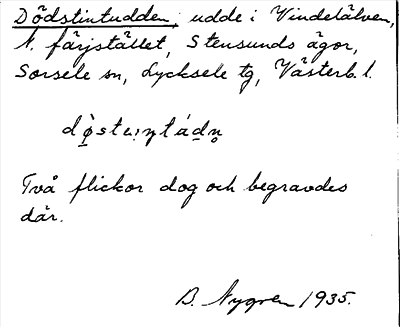 Dödstintudden, udde i Vindelälven,
N. färjstället, Stensunds ägor,
Sorsele sn, Lycksele tg, Västerb. l.
Två flickor dog och begravdes
där.
B. Nygren 1935.